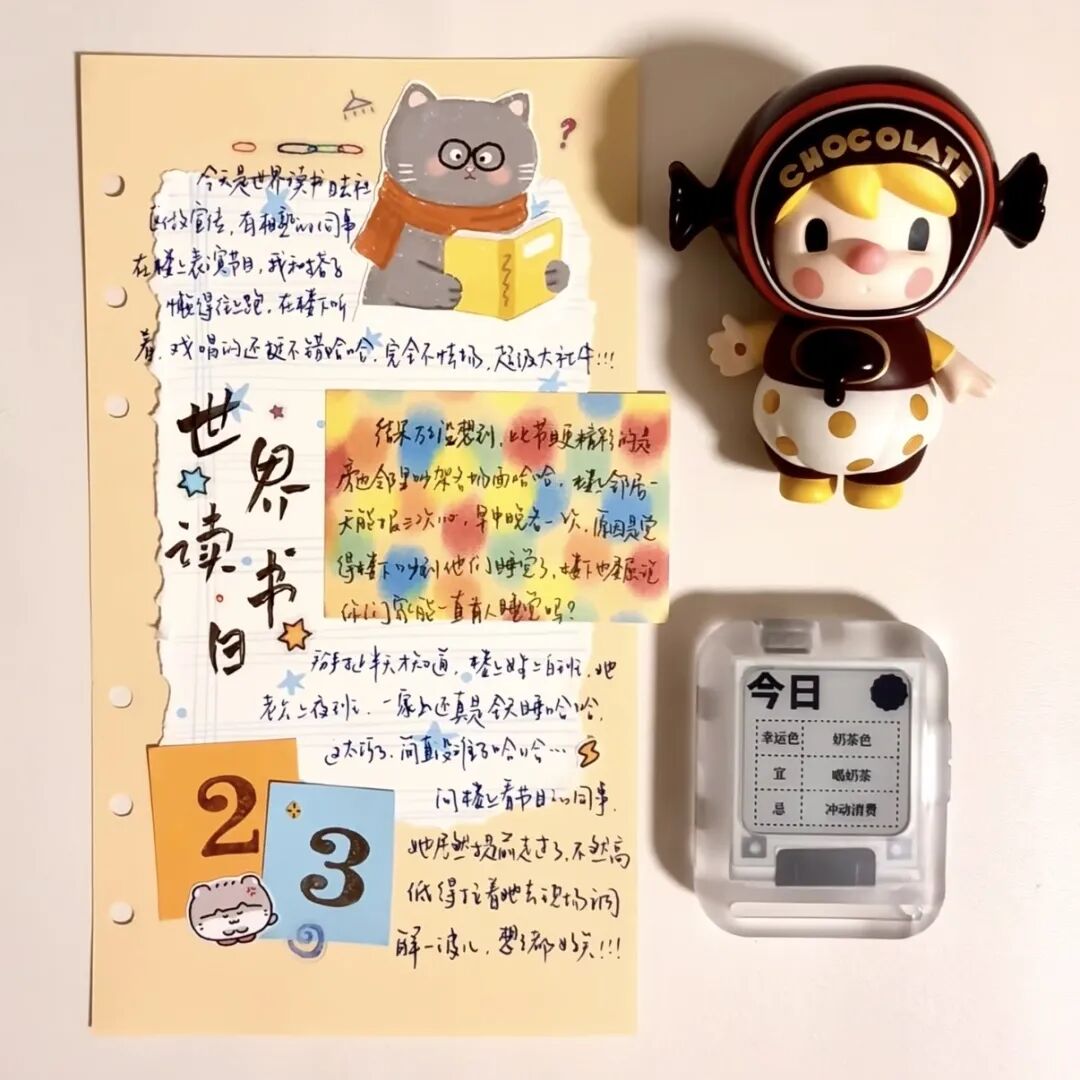 今天是世界读书日去社
区做宣传，有相熟的同事
在楼上表演节目，我和搭子
懒得往上跑，在楼下听
着，戏唱的还挺不错哈哈，完全不怯场，超级大社牛!!!
世界读书日
结果万万没想到，比节目更精彩的是
旁边邻里吵架名场面哈哈，楼上邻居一
天能报三次110，早中晚各一次，原因是觉
得楼下吵到他们睡觉了，楼下也委屈说
你们家能一直有人睡觉吗？
半天才知道，楼上她上白班，她
老公上夜班，一家人还真是全天睡哈哈，
这太巧了，简直没谁了哈哈…
问楼上看节目的同事，
她居然提前走过了，不然高
低得拉着她去现场调
解一波儿，想想都好笑!!!
23
CHOCOLATE
今日
幸运色 奶茶色
宜 喝奶茶
忌 冲动消费